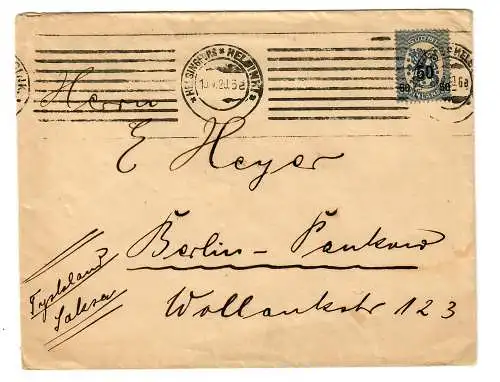 HELSINGFORS * HELSINKI
19.V.20.6 a
50
60 60
Herrn
E Heyer
Berlin-Pankow
Wollankstr 123
Tyskland
Saksa